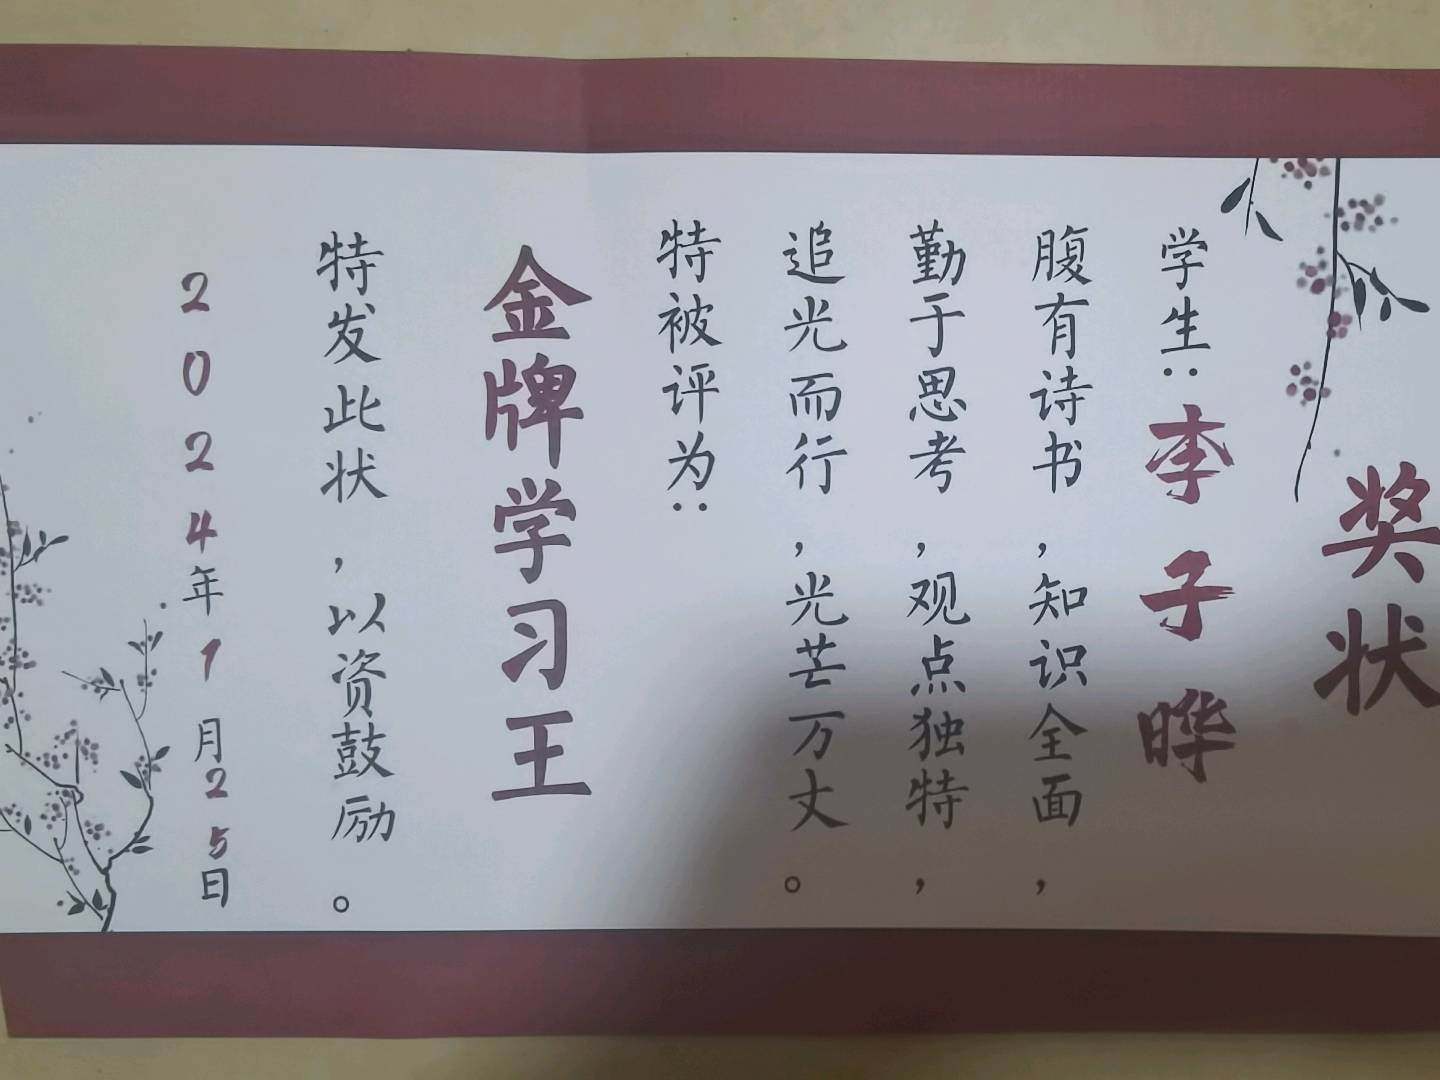 奖状
学生：李子晔
腹有诗书，知识全面，
勤于思考，观点独特，
追光而行，光芒万丈。
特被评为：
金牌学习王
特发此状，以资鼓励。
2024年1月25日